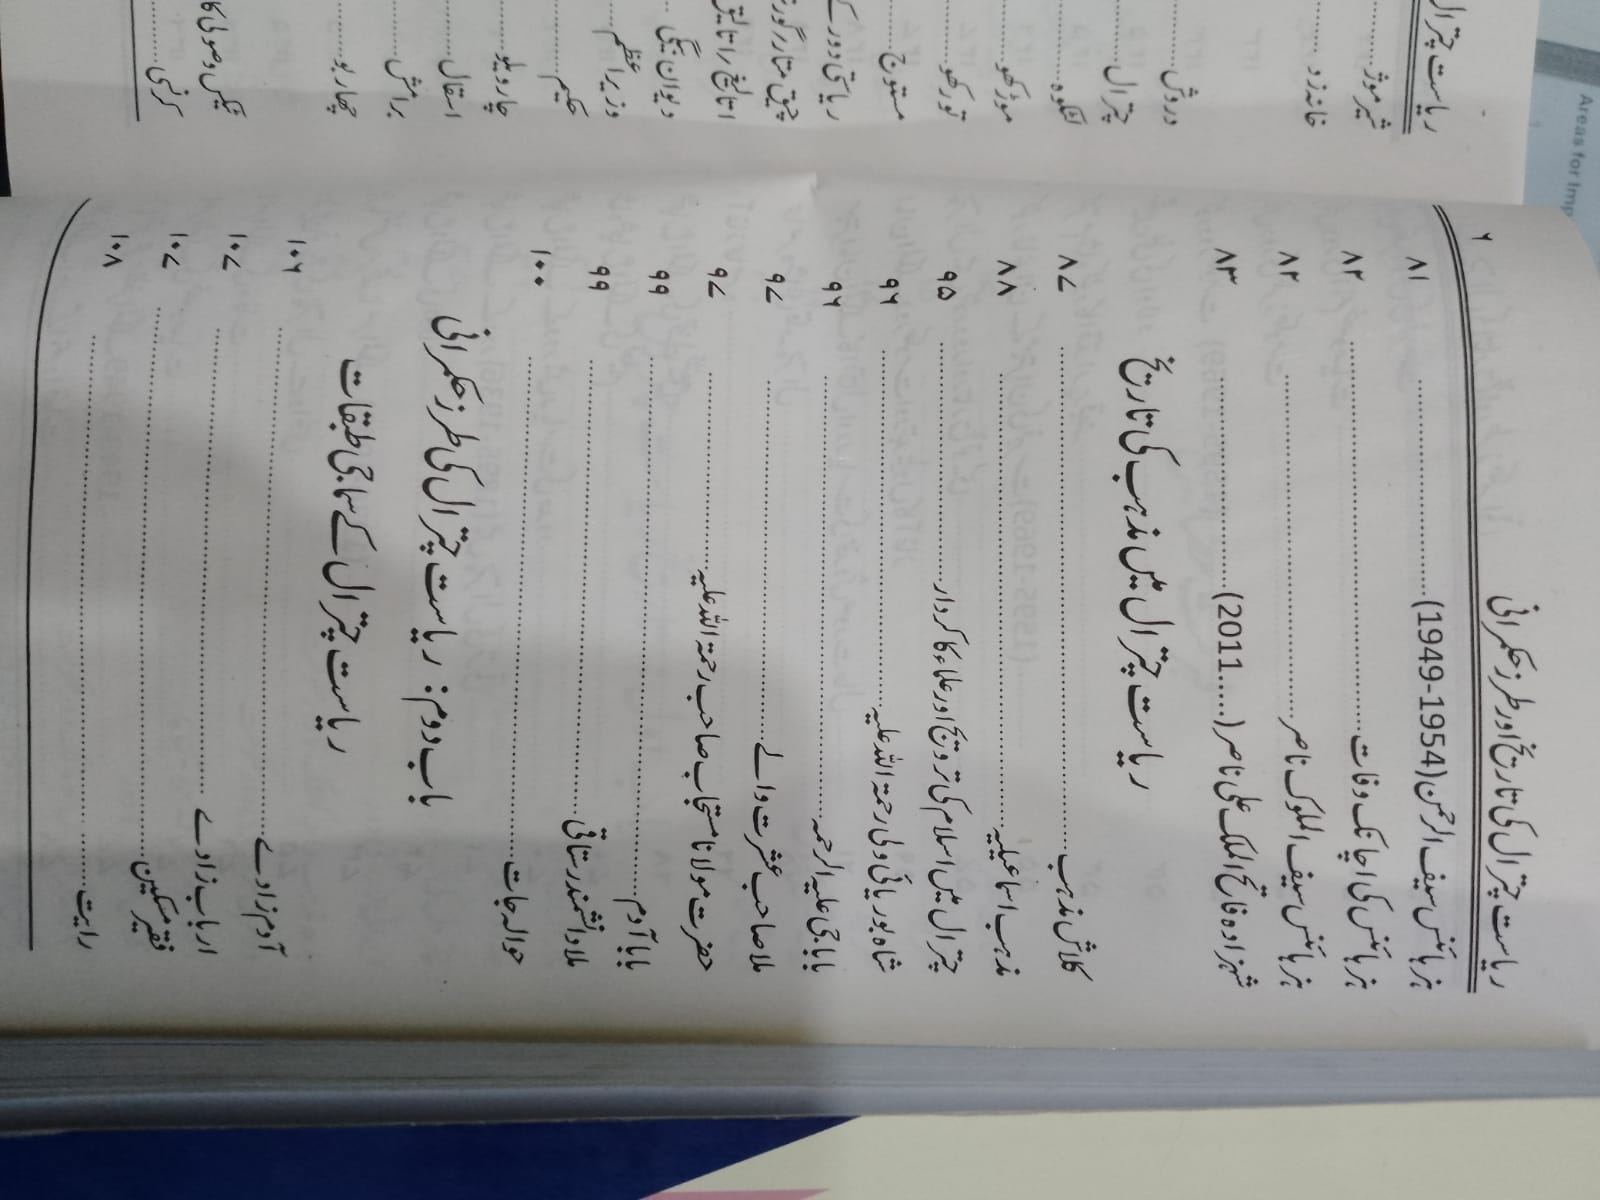 ریاست چترال کی تاریخ اور طرز حکمرانی ۶
ہز ہائنس سیف الرحمن (1949-1954) ........ ۸۱
ہز ہائنس کی اچانک وفات ........ ۸۲
ہز ہائنس سیف الملوک ناصر ........ ۸۲
شہزادہ فاتح الملک علی ناصر (2011.....) ........ ۸۳
ریاست چترال میں مذہب کی تاریخ
کلاش مذہب ........ ۸۷
مذہب اسماعیلیہ ........ ۸۸
چترال میں اسلام کی ترویج اور علماء کا کردار ........ ۹۵
شاہ بوریائی ولی رحمۃ اللہ علیہ ........ ۹۶
باباجی علیہ الرحمہ ........ ۹۶
ملا صاحب عشرت والے ........ ۹۷
حضرت مولانا مستجاب صاحب رحمۃ اللہ علیہ ........ ۹۷
بابا آدم ........ ۹۹
ملا دانشمند رستاقی ........ ۹۹
حوالہ جات ........ ۱۰۰
باب دوم: ریاست چترال کی طرز حکمرانی
ریاست چترال کے سماجی طبقات
آدم زادے ........ ۱۰۶
ارباب زادے ........ ۱۰۷
فقیر مسکین ........ ۱۰۷
رایت ........ ۱۰۸
ریاست چترال
شیر موژ
خانہ زاد
دروش
چترال
لٹکوہ
موڑکھو
تورکھو
مستوج
ریاستی دور کے
اتالیغ (اتالیق
دیوان بیگی
وزیر اعظم
حکیم
چارویلو
اسقال
برامش
چھاربو
ٹیکس وصولی کا
کرنسی
Areas for Imp